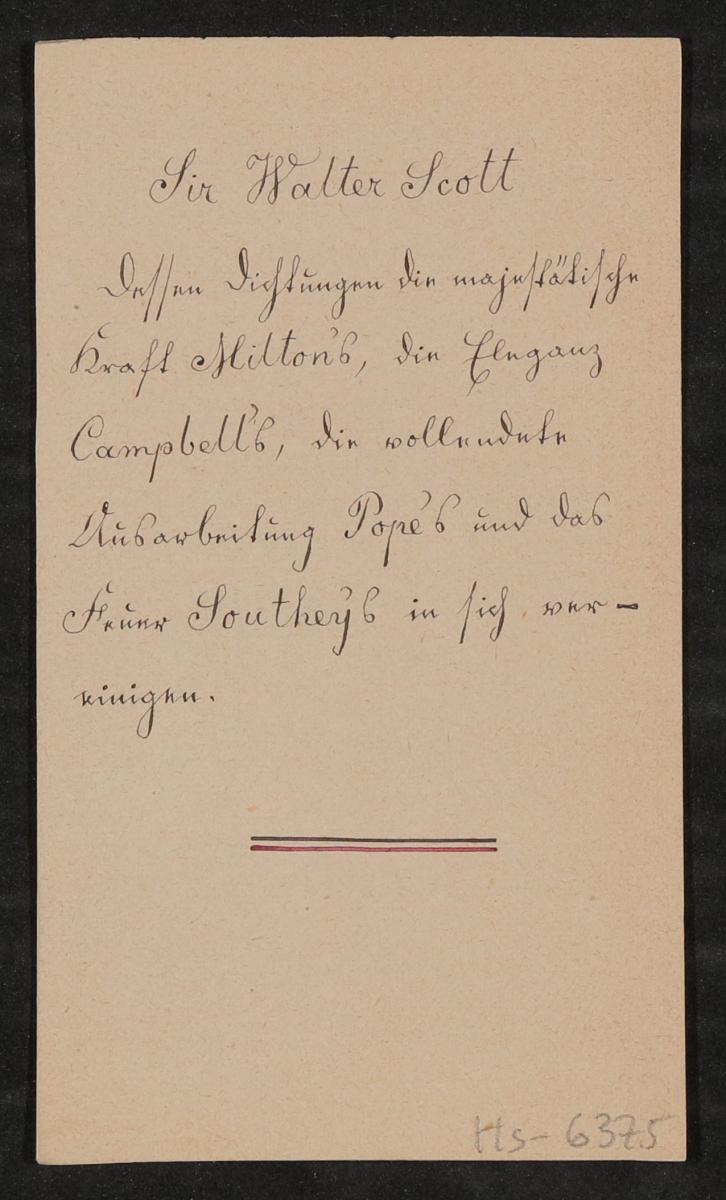 Sir Walter Scott
Dessen Dichtungen die majestätische
Kraft Milton's, die Eleganz
Campbell's, die vollendete
Ausarbeitung Pope's und das
Feuer Southey's in sich ver-
einigen.
Hs-6375